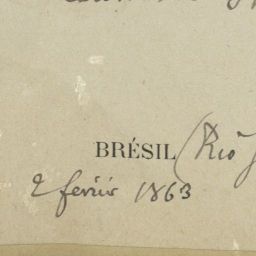 BRÉSIL (Rio
2 février 1863